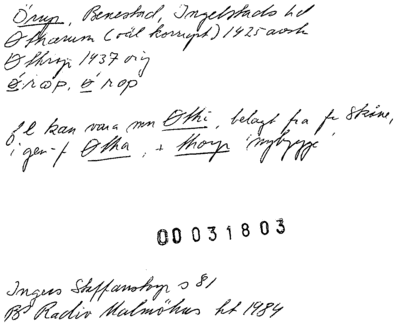 Örup, Benestad, Ingelstads hd
Øthærum (väl korrupt) 1425 avskr
Øthrup 1437 orig
ǿrɷp, ǿrop
fl kan vara mn Øthi, belagt fra fr Skåne,
i gen-f Øtha, + thorp 'nybygge'
00031803
Ingers Steffanstorp s 81
BS Radio Malmöhus ht 1984